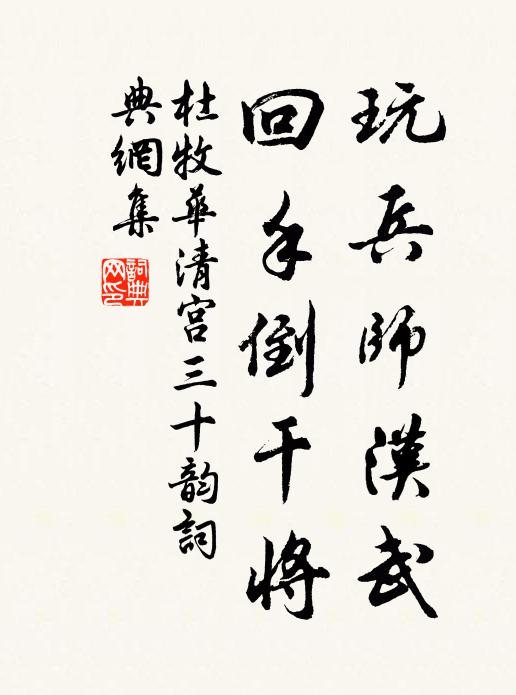 玩兵師漢武
回手倒干將
杜牧華清宮三十韵詞
典網集
詞典
网印